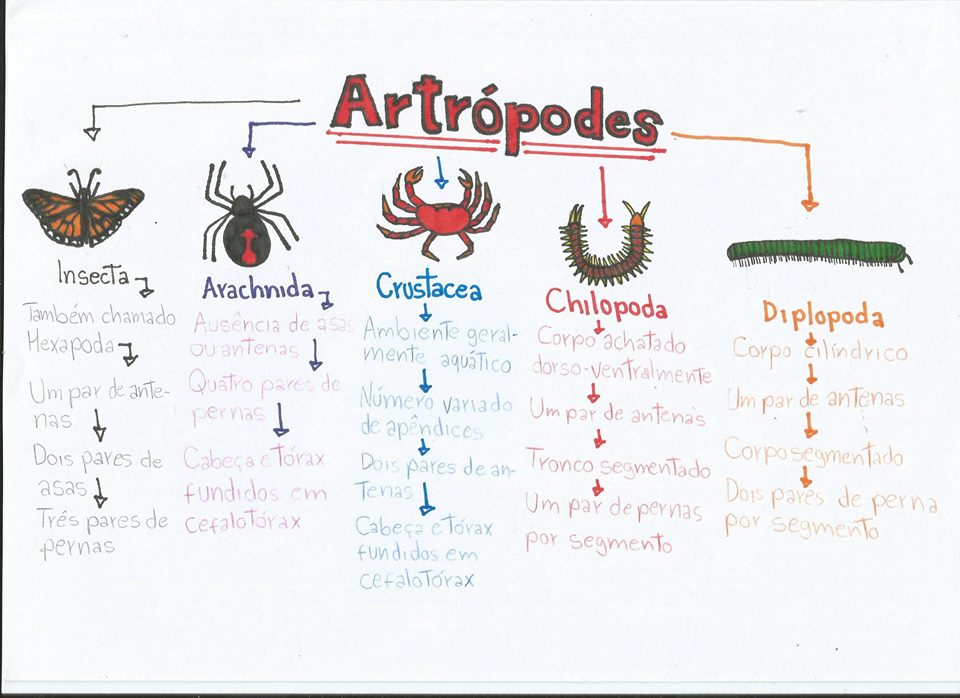 Artrópodes
Insecta
Também chamado
Hexapoda
Um par de ante-
nas
Dois pares de
asas
Três pares de
pernas
Arachnida
Ausência de asas
ou antenas
Quatro pares de
pernas
Cabeça e tórax
fundidos em
cefalotórax
Crustacea
Ambiente geral-
mente aquático
Número variado
de apêndices
Dois pares de an-
tenas
Cabeça e tórax
fundidos em
cefalotórax
Chilopoda
Corpo achatado
dorso-ventralmente
Um par de antenas
Tronco segmentado
Um par de pernas
por segmento
Diplopoda
Corpo cilíndrico
Um par de antenas
Corpo segmentado
Dois pares de perna
por segmento